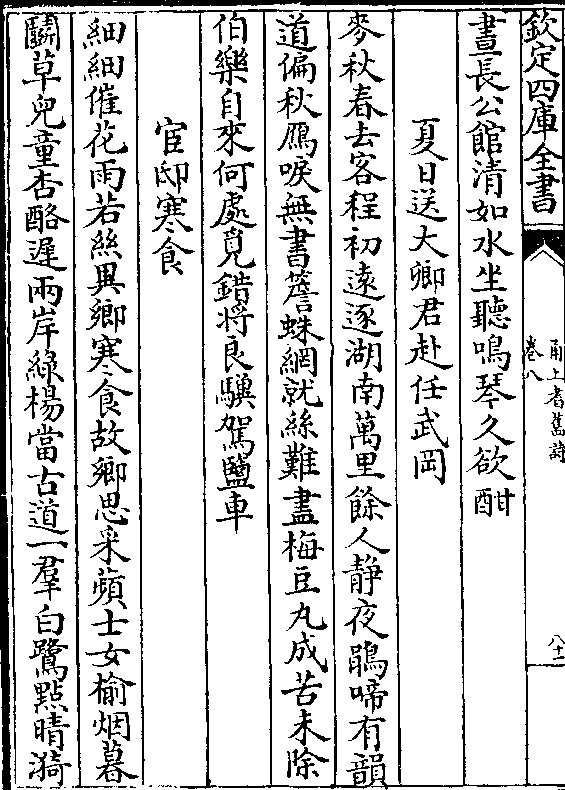 欽定四庫全書
甬上耆舊詩
卷八
八十一
晝長公館清如水坐聽鳴琴久欲酣
夏日送大卿君赴任武岡
麥秋春去客程初遠逐湖南萬里餘人静夜鵑啼有韻
道偏秋鴈唳無書簷蛛網就絲難盡梅豆丸成苦未除
伯樂自來何處覓錯將良驥駕鹽車
宦邸寒食
細細催花雨若絲異鄉寒食故鄉思采蘋士女榆烟暮
鬭草兒童杏酪遲兩岸綠楊當古道一羣白鷺點晴漪